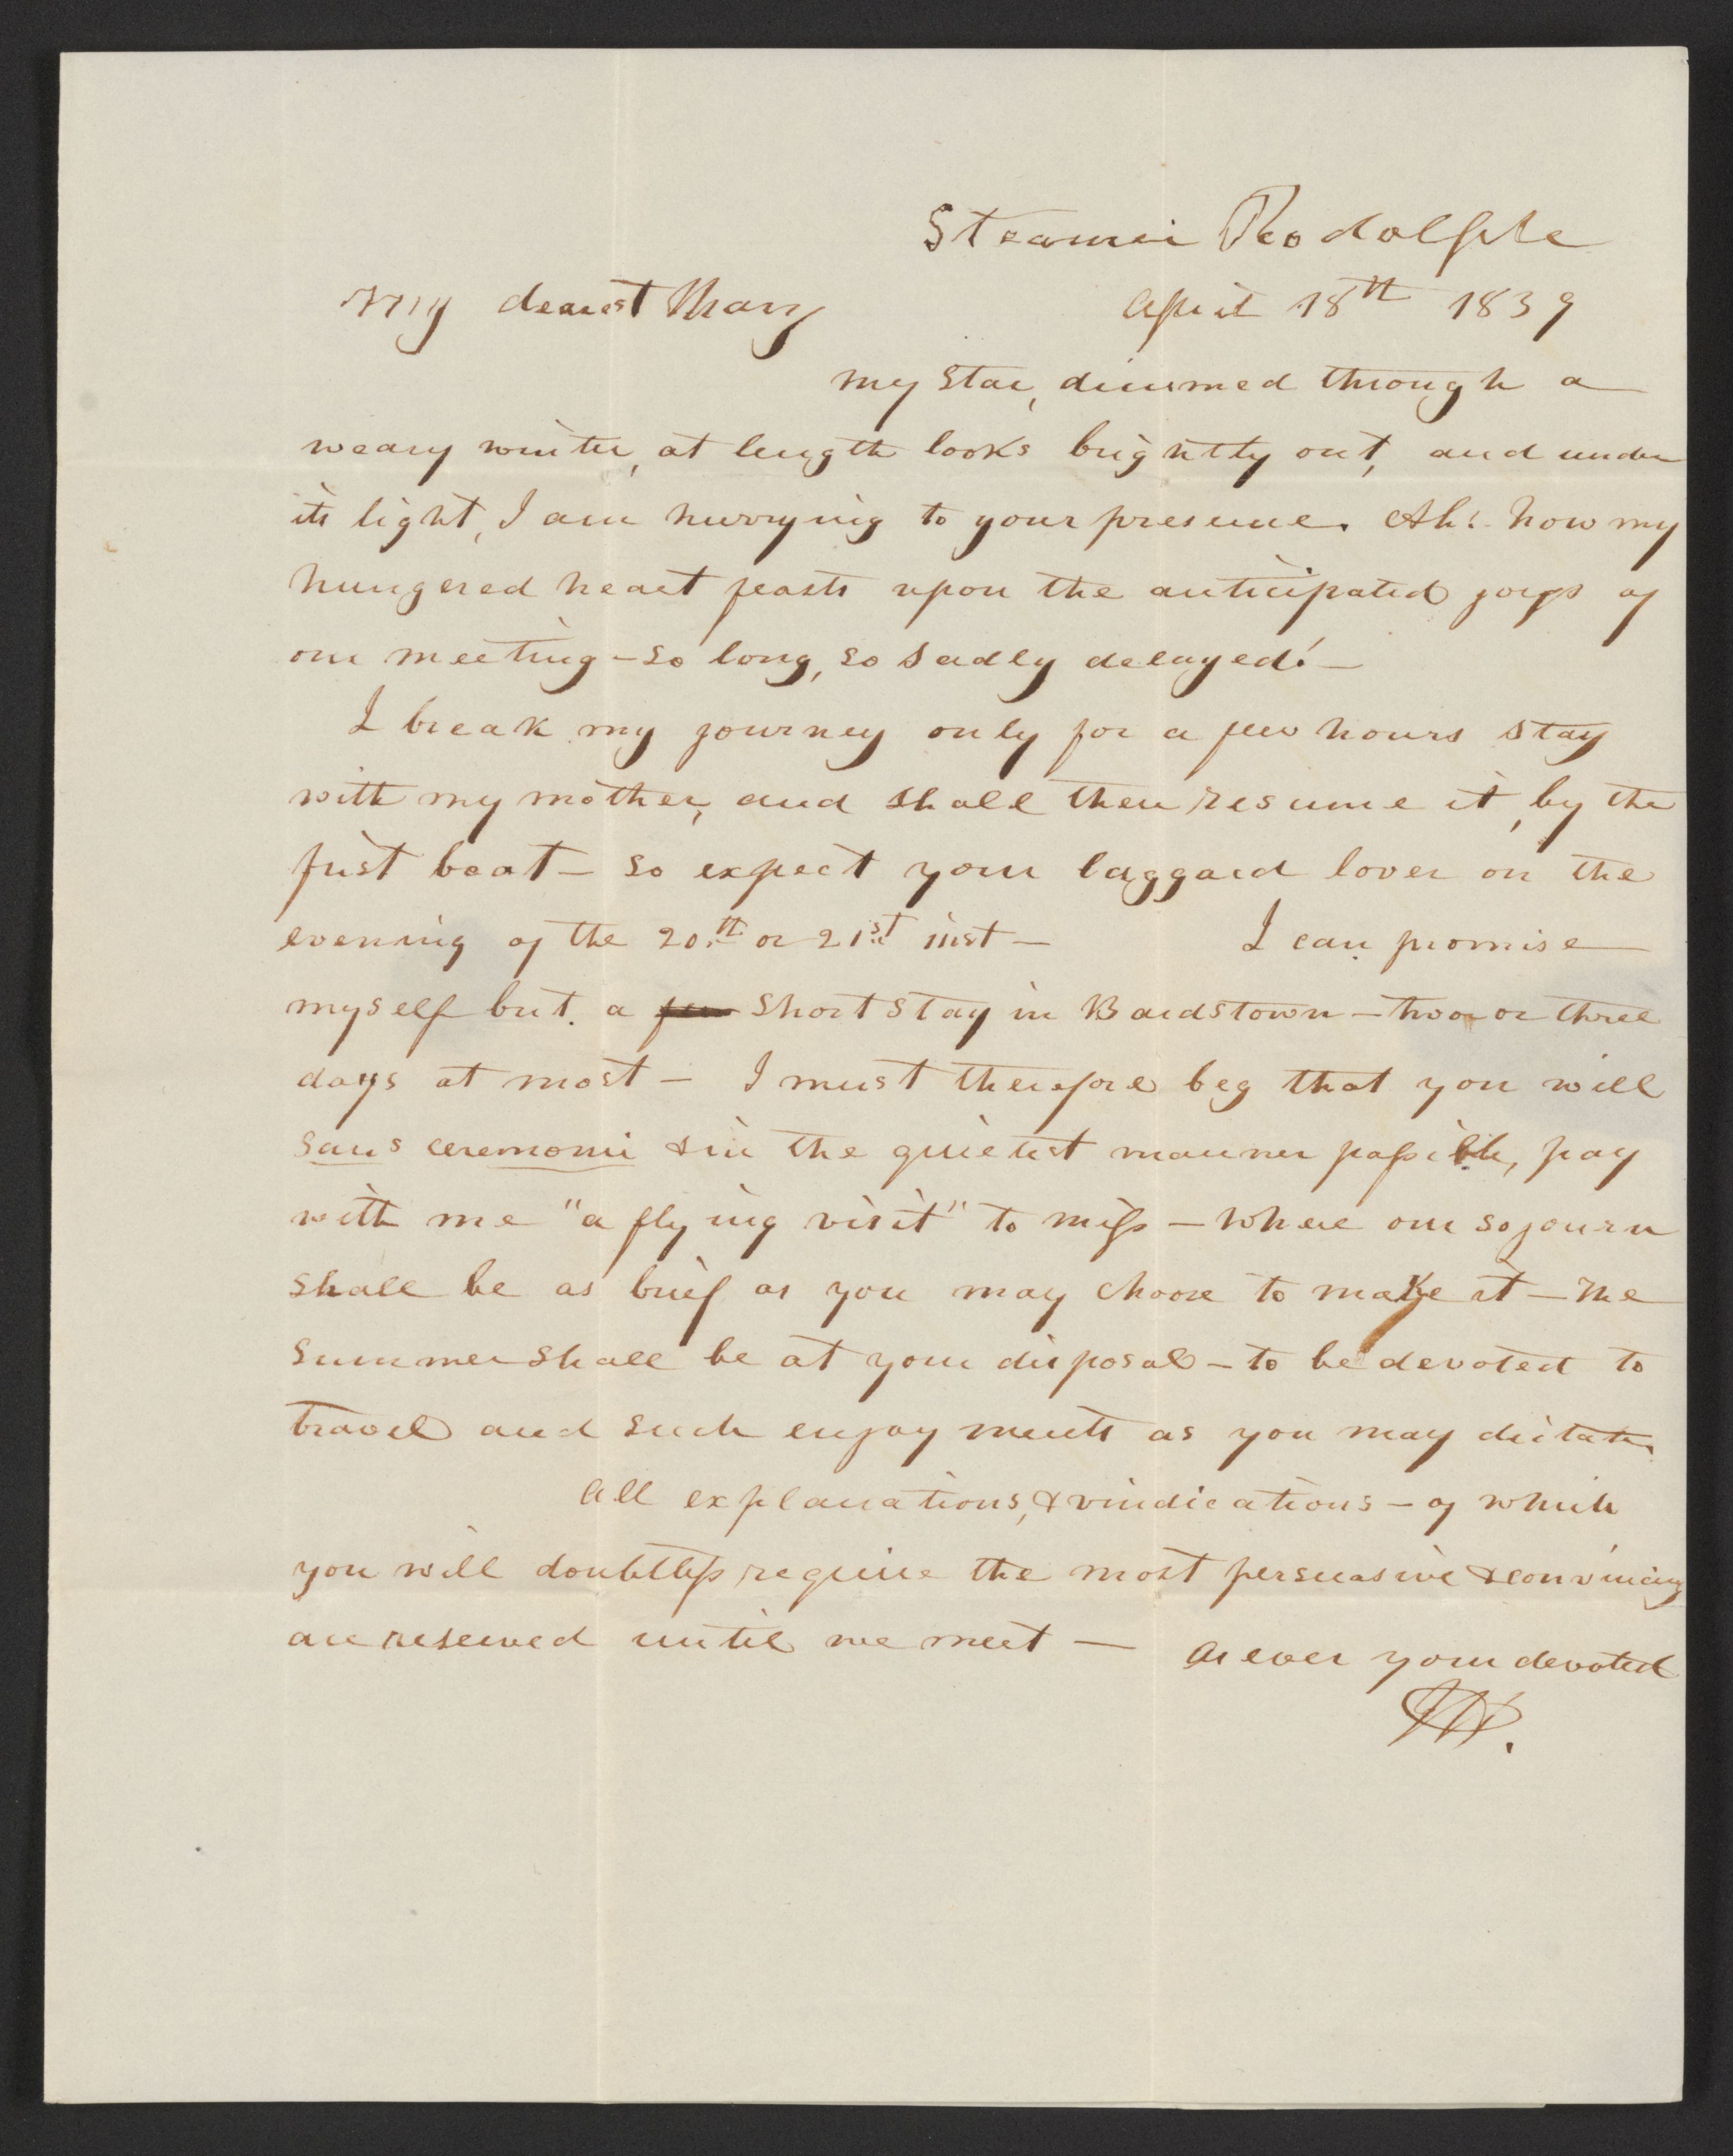 Steamer Rodolphe
My dearest Mary April 18th 1839
my star, dimmed through a
weary winter, at length looks brightly out, and under
its light, I am hurrying to your presence. Ah! how my
hungered heart feasts upon the anticipated joys of
our meeting – so long, so sadly delayed! –
I break my journey only for a few hours stay
with my mother, and shall then resume it, by the
first boat – so expect your laggard lover on the
evening of the 20th or 21st inst – I can promise
myself but a few short stay in Bardstown – two or three
days at most – I must therefore beg that you will
sans ceremonie & in the quietest manner possible, pay
with me "a flying visit" to Miss – where our sojourn
shall be as brief as you may choose to make it – The
summer shall be at your disposal – to be devoted to
travel and such enjoyments as you may dictate.
All explanations, & vindications – of which
you will doubtless require the most persuasive & convincing
are reserved until we meet — As ever your devoted